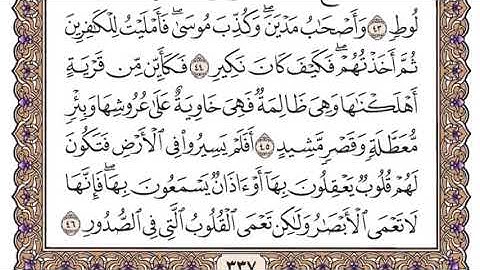 لُوطٍ ٤٣ وَأَصْحَـٰبُ مَدْيَنَ ۖ وَكُذِّبَ مُوسَىٰ ۖ فَأَمْلَيْتُ لِلْكَـٰفِرِينَ
ثُمَّ أَخَذْتُهُمْ ۖ فَكَيْفَ كَانَ نَكِيرِ ٤٤ فَكَأَيِّن مِّن قَرْيَةٍ
أَهْلَكْنَـٰهَا وَهِىَ ظَالِمَةٌ فَهِىَ خَاوِيَةٌ عَلَىٰ عُرُوشِهَا وَبِئْرٍ
مُّعَطَّلَةٍ وَقَصْرٍ مَّشِيدٍ ٤٥ أَفَلَمْ يَسِيرُوا۟ فِى ٱلْأَرْضِ فَتَكُونَ
لَهُمْ قُلُوبٌ يَعْقِلُونَ بِهَآ أَوْ ءَاذَانٌ يَسْمَعُونَ بِهَا ۖ فَإِنَّهَا
لَا تَعْمَى ٱلْأَبْصَـٰرُ وَلَـٰكِن تَعْمَى ٱلْقُلُوبُ ٱلَّتِى فِى ٱلصُّدُورِ ٤٦
٣٣٧